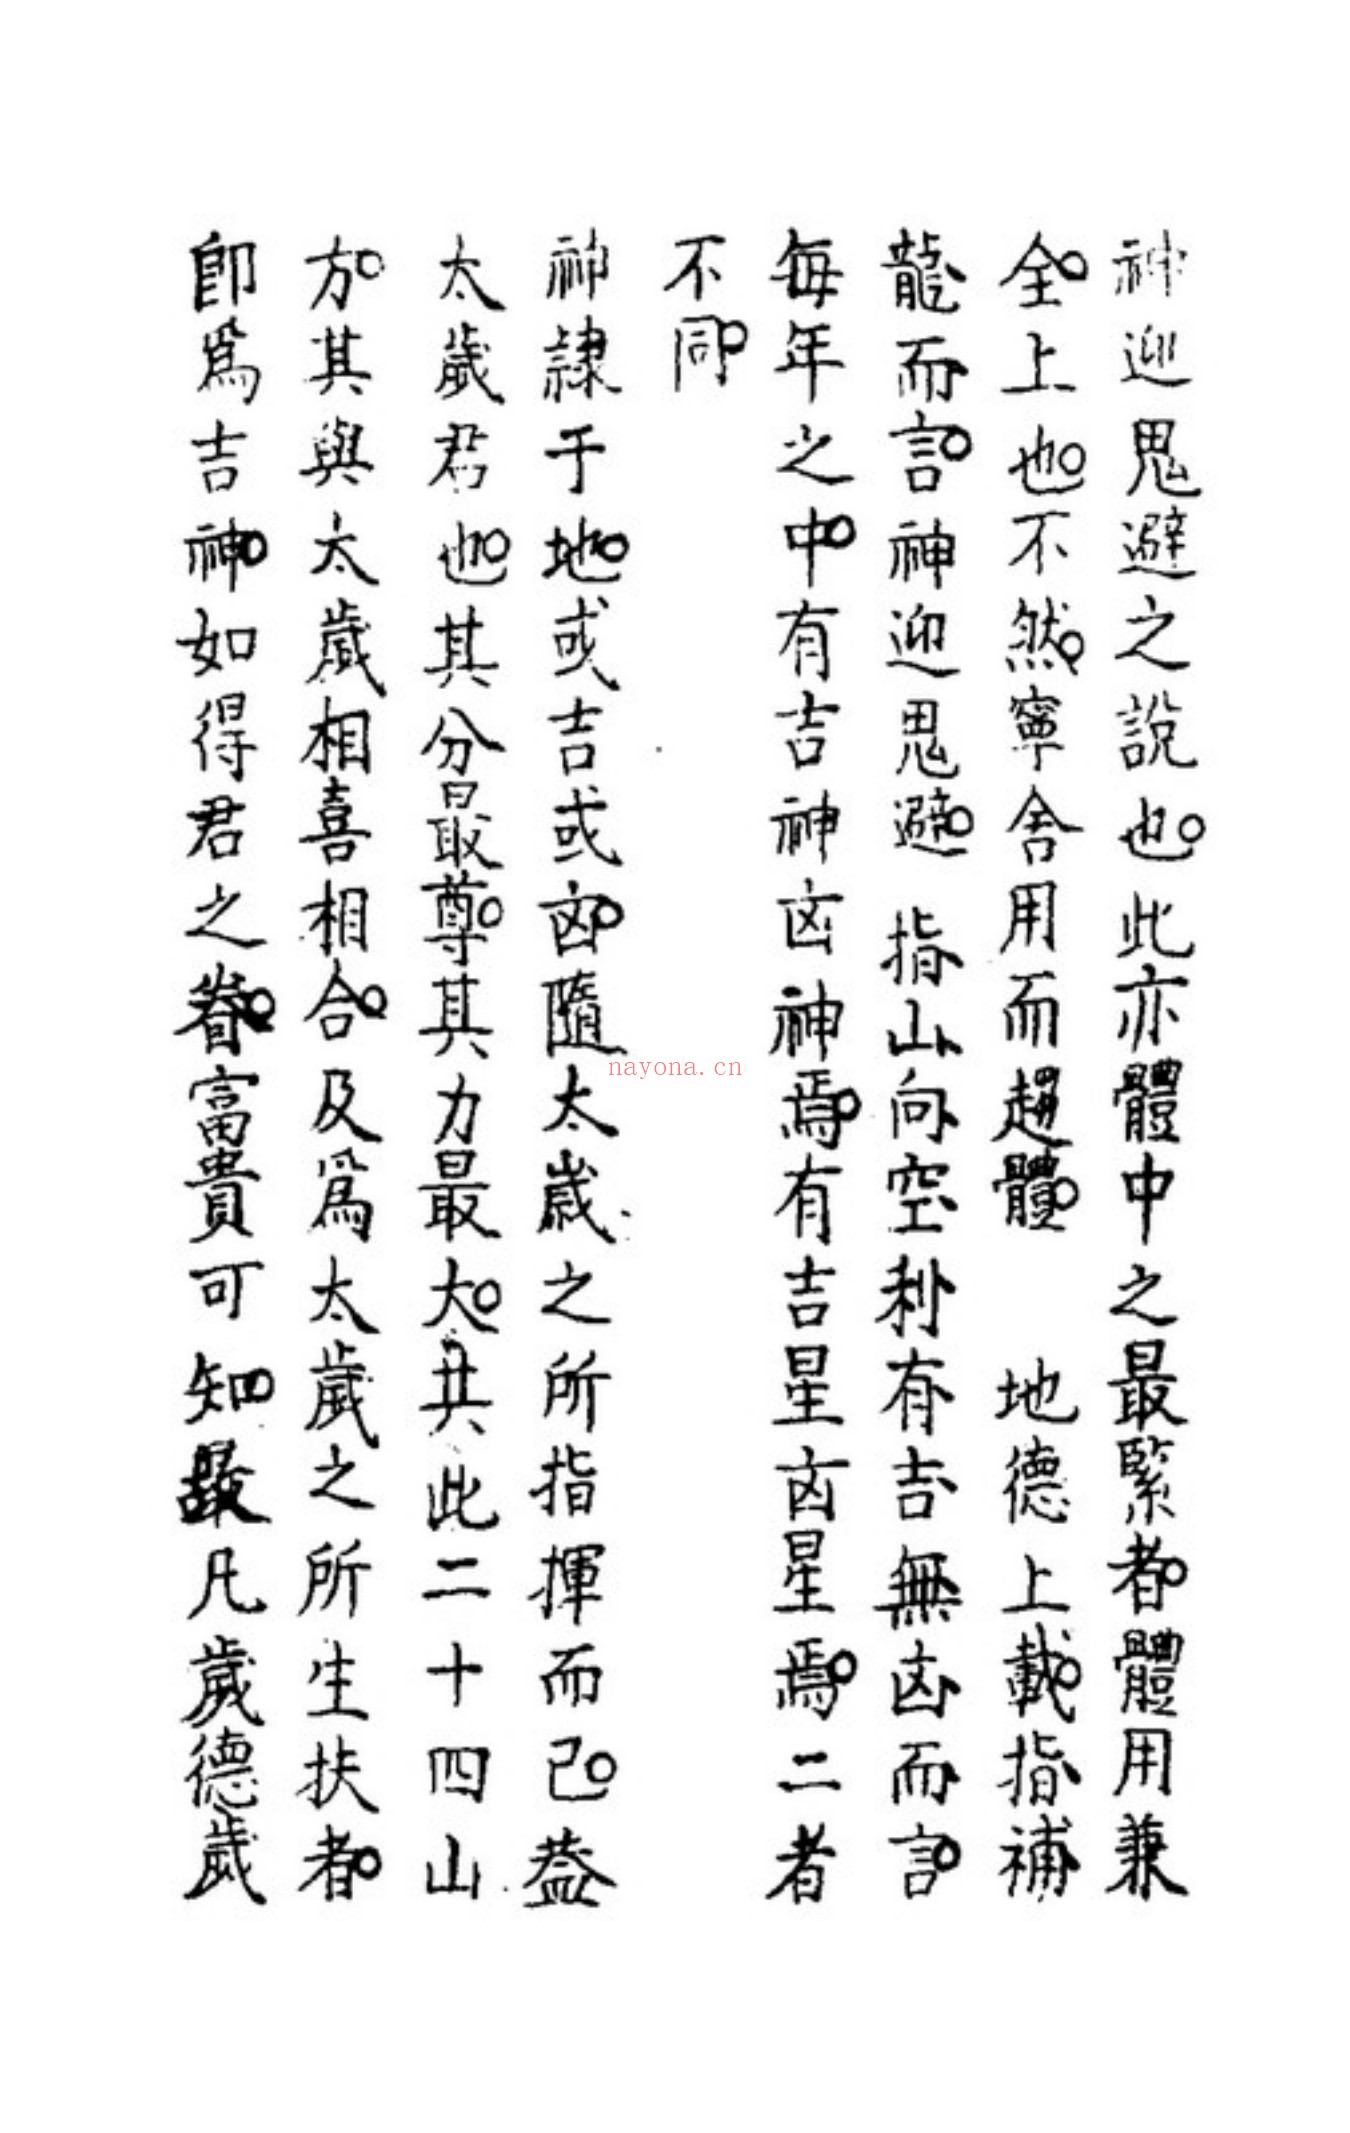 神迎鬼避之說也。此亦體中之最緊者。體用兼
全。上也。不然。寧舍用而趨體。　地德上載。指補
龍而言。神迎鬼避。指山向空利有吉無凶而言。
每年之中。有吉神凶神焉。有吉星凶星焉。二者
不同。
神隷于地。或吉或凶。隨太歲之所指揮而已。蓋
太歲君也。其分最尊。其力最大。其此二十四山
方。其與太歲相喜相合。及爲太歲之所生扶者。
卽爲吉神。如得君之眷。富貴可知。故凡歲德歲
nayona.cn